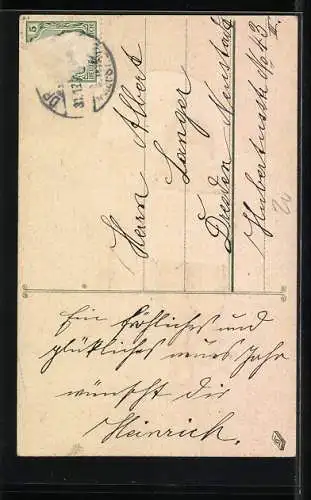 Ein fröhliches und
glückliches neues Jahr
wünscht dir
Heinrich.
Herrn Albert
Langer
Dresden Neustadt
Hubertusstr. No 43 II.
5
31.12